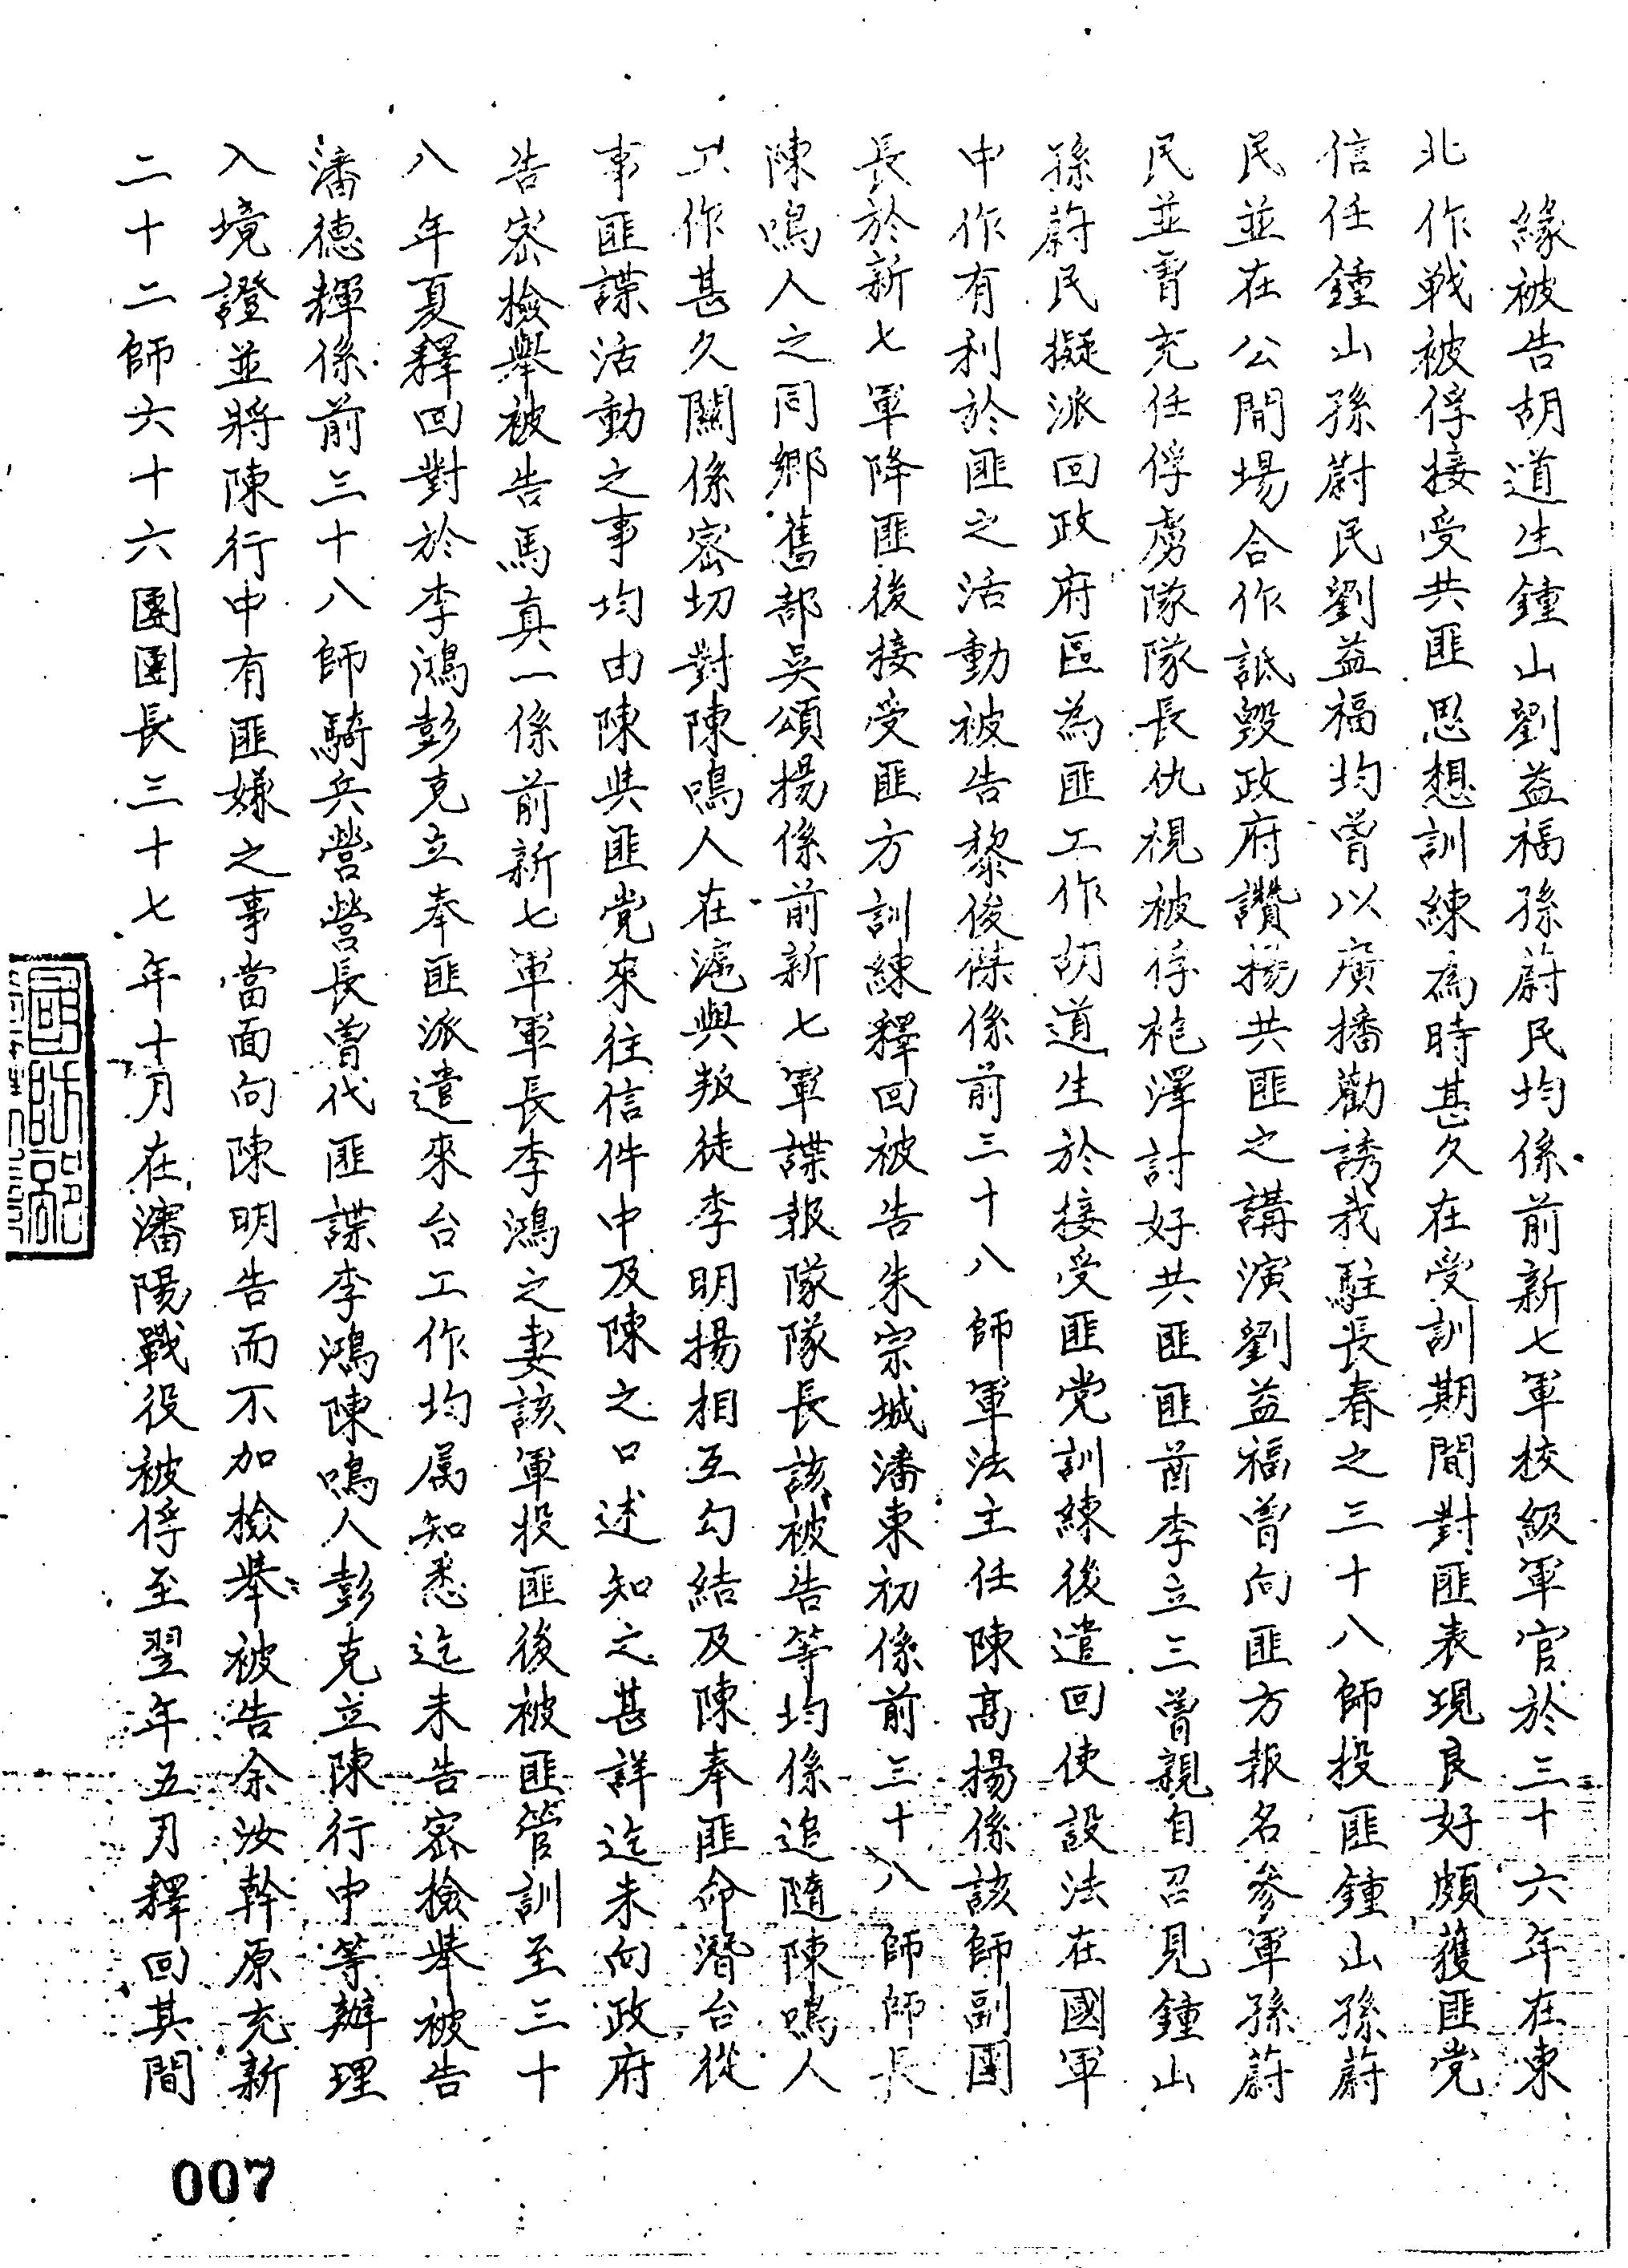 緣被告胡道生鍾山劉益福孫蔚民均係前新七軍校級軍官於三十六年在東
北作戰被俘接受共匪思想訓練為時甚久在受訓期間對匪表現良好頗獲匪党
信任鍾山孫蔚民劉益福均曾以廣播勸誘我駐長春之三十八師投匪鍾山孫蔚
民並在公開場合作詆毀政府讚揚共匪之講演劉益福曾向匪方報名參軍孫蔚
民並曾充任俘虜隊隊長仇視被俘袍澤討好共匪匪酋李立三曾親自召見鍾山
孫蔚民擬派回政府區為匪工作胡道生於接受匪党訓練後遣回使設法在國軍
中作有利於匪之活動被告黎俊傑係前三十八師軍法主任陳高揚係該師副團
長於新七軍降匪後接受匪方訓練釋回被告朱宗城潘東初係前三十八師師長
陳鳴人之同鄉舊部吳頌揚係前新七軍諜報隊隊長該被告等均係追隨陳鳴人
工作甚久關係密切對陳鳴人在滬與叛徒李明揚相互勾結及陳奉匪命潛台從
事匪諜活動之事均由陳與匪党來往信件中及陳之口述知之甚詳迄未向政府
告密檢舉被告馬真一係前新七軍軍長李鴻之妻該軍投匪後被匪管訓至三十
八年夏釋回對於李鴻彭克立奉匪派遣來台工作均属知悉迄未告密檢舉被告
潘德輝係前三十八師騎兵營營長曾代匪諜李鴻陳鳴人彭克立陳行中等辦理
入境證並將陳行中有匪嫌之事當面向陳明告而不加檢舉被告余汝幹原充新
二十二師六十六團團長三十七年十月在瀋陽戰役被俘至翌年五月釋回其間
007